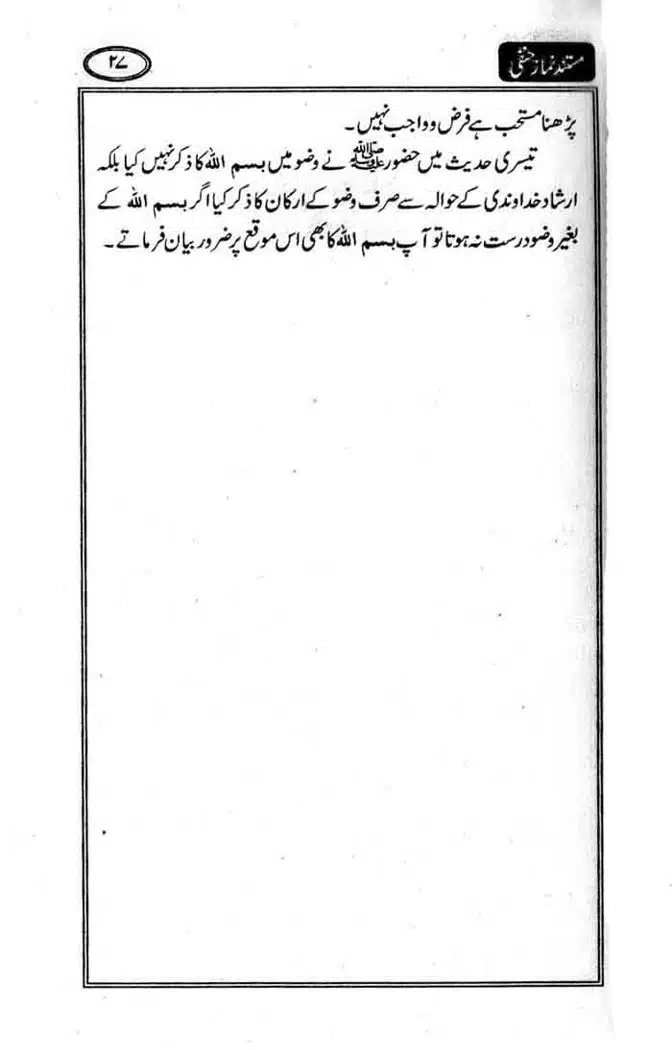 مستند نماز حنفی
۲۷
پڑھنا مستحب ہے فرض و واجب نہیں۔
تیسری حدیث میں حضور ﷺ نے وضو میں بسم اللہ کا ذکر نہیں کیا بلکہ
ارشاد خداوندی کے حوالہ سے صرف وضو کے ارکان کا ذکر کیا اگر بسم اللہ کے
بغیر وضو درست نہ ہوتا تو آپ بسم اللہ کا بھی اس موقع پر ضرور بیان فرماتے۔